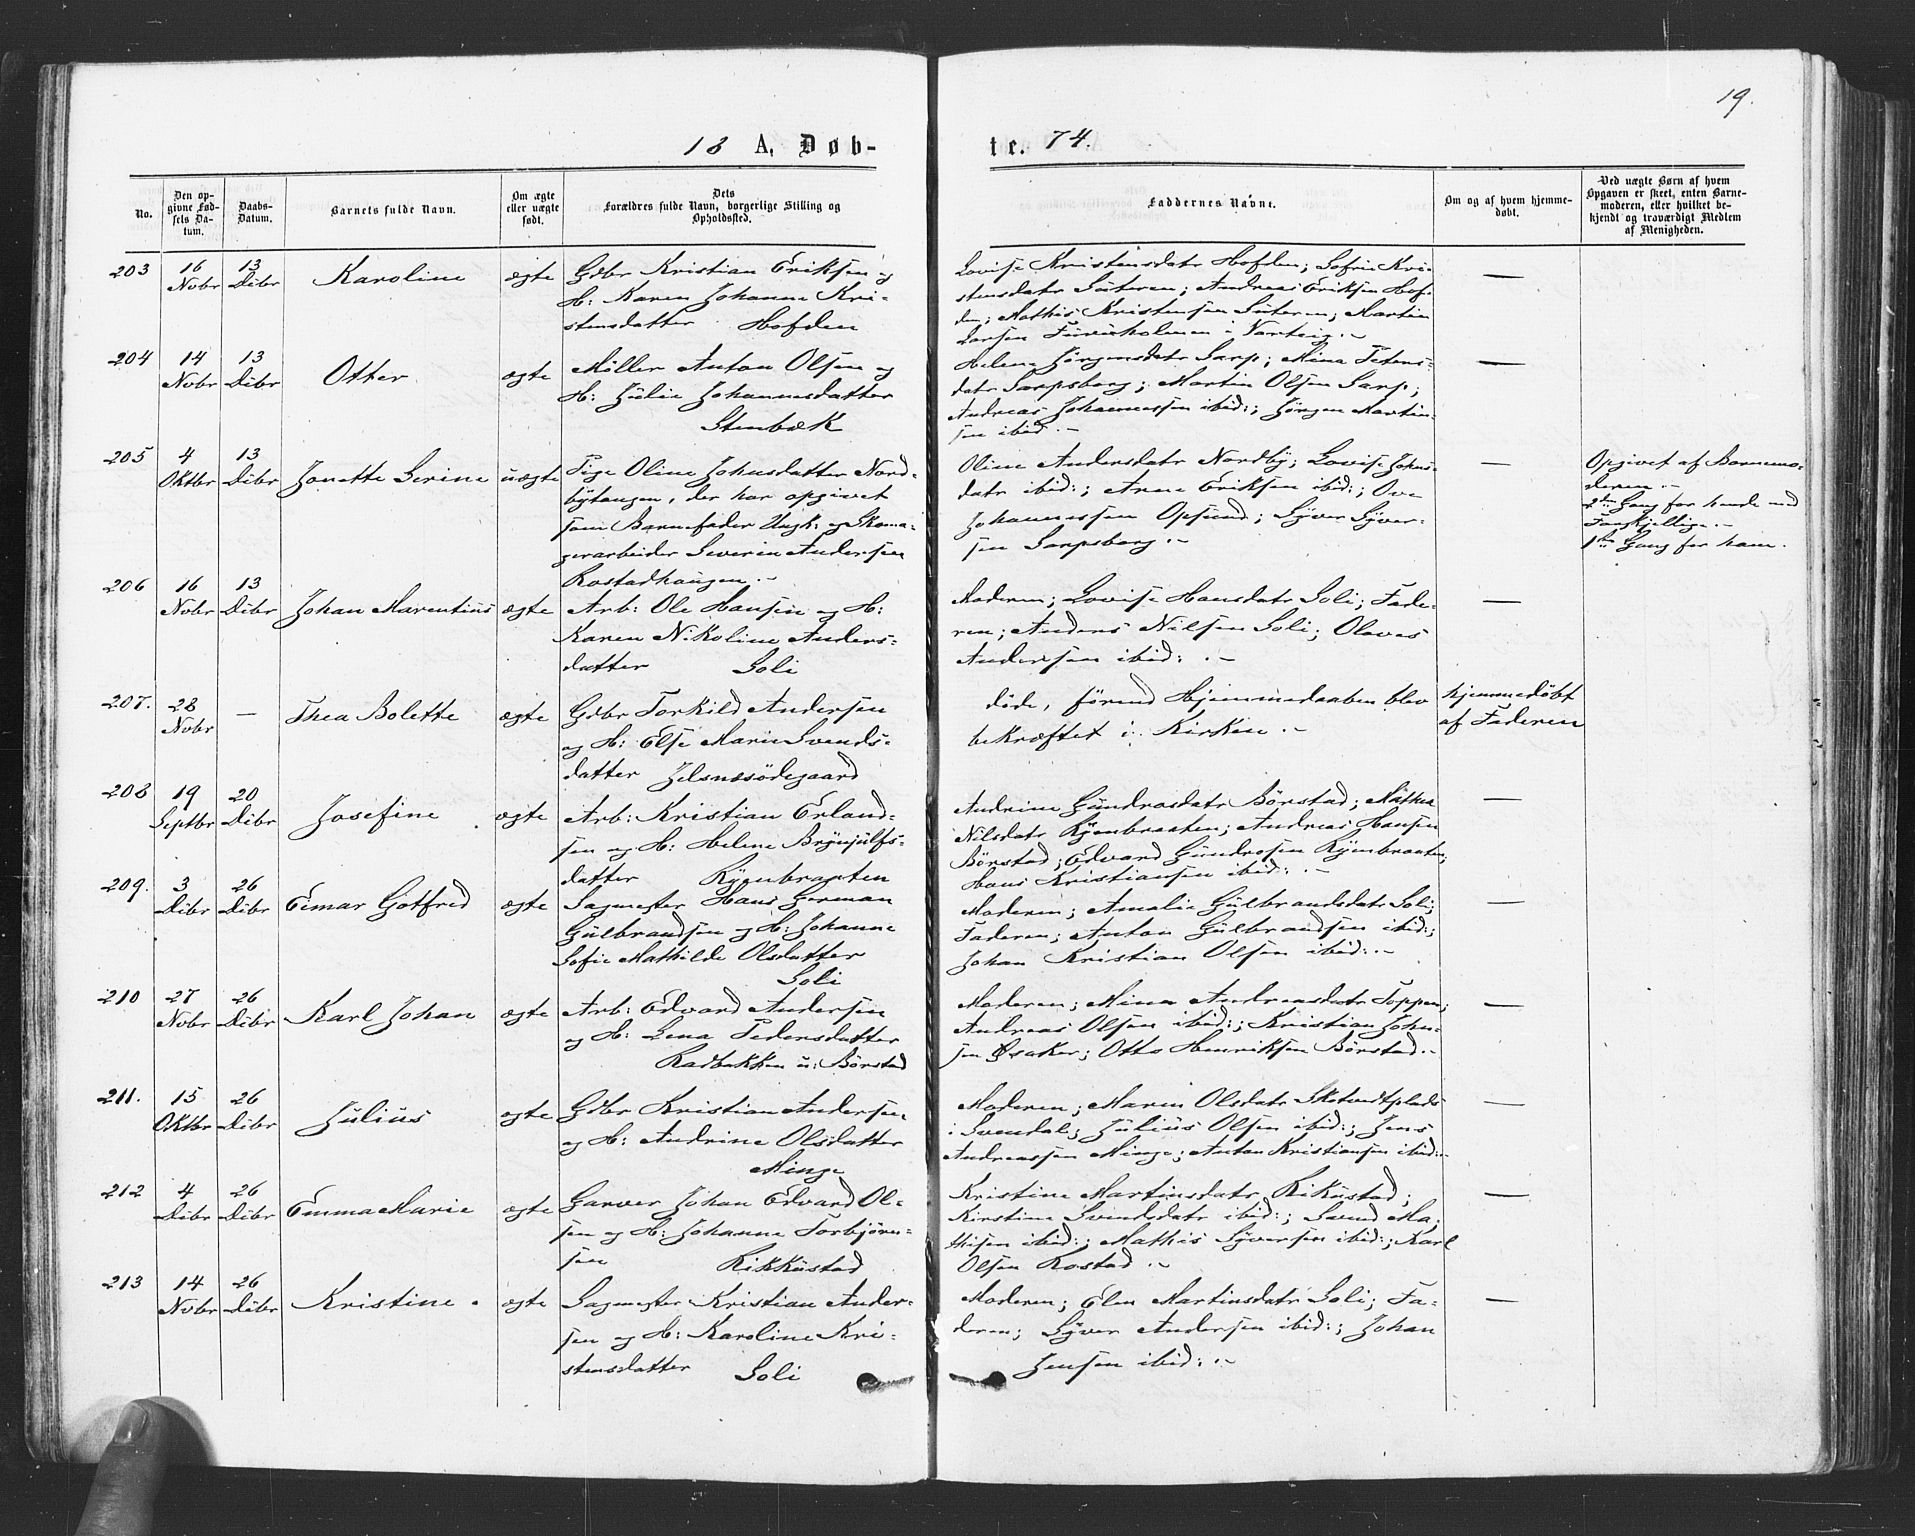 19.
18 A. Døb-
te. 74.
No.
Den op-
givne Fød-
sels Da-
tum.
Daabs-
Datum.
Barnets fulde Navn.
Om ægte
eller uægte
født.
Dets
Forældres fulde Navn, borgerlige Stilling og
Opholdssted.
Faddernes Navne.
Om og af hvem hjemme-
døbt.
Ved uægte Børn af hvem
Opgaven er skeet, enten Barne-
moderen, eller hvilket be-
kjendt og troværdigt Medlem
af Menigheden.
203
16
Nvbr
13
Dcbr
Karoline
ægte
Gdbr Kristian Eriksen og
H: Karen Johanne Kri-
stensdatter Hofden
Lovise Kristensdatr Hofden; Sofie Kri-
stensdatr Suteren; Andreas Eriksen Hof-
den; Mathis Kristensen Suteren; Martin
Larsen Furuholmen i Varteig.-
—
204
14
Nvbr
13
Dcbr
Otter
ægte
Møller Anton Olsen og
H: Julie Johannesdatter
Stenbæk
Helene Jörgensdatr Sarp; Mina Peters-
datr Sarpsborg; Martin Olsen Sarp;
Andreas Johannessen ibid:; Jörgen Martin-
sen ibid.-
—
205
4
Oktbr
13
Dcbr
Jonette Serine
uægte
Pige Oline Johnsdatter Nord-
bytangen, der har opgivet
som Barnefader Ungk: og Skoma-
gerarbeider Severin Andersen
Rostadhaugen.-
Oline Andersdatr Nordby; Lovise Johns-
datr ibid:; Arne Eriksen ibid:; Ove
Johannessen Opsund; Syver Syver-
sen Sarpsborg.-
—
Opgivet af Barnemo-
deren.-
2den Gang for hende med
Forskjellige.-
1ste Gang for ham.
206
16
Nvbr
13
Dcbr
Johan Marentius
ægte
Arb: Ole Hansen og H:
Karen Nikoline Anders-
datter Soli
Moderen; Lovise Hansdatr Soli; Fade-
ren; Anders Nilsen Soli; Olaves
Andersen ibid:.-
—
207.
28
Nvbr
—
Thea Bolette
ægte
Gdbr Torkild Andersen
og H: Else Marie Svends-
datter Jelsnesödegaard
döde, förend Hjemmedaaben blev
bekræftet i Kirken.-
hjemmedöbt
af Faderen
208
19
Septbr
20
Dcbr
Josefine
ægte
Arb: Kristian Erland-
sen og H: Helene Brynjulfs-
datter Kjenbraaten
Andrine Gundrosdatr Börstad; Mathea
Nilsdatr Kjenbraaten; Andreas Hansen
Börstad; Edvard Gundrosen Kjenbraaten;
Hans Kristiansen ibid:.-
—
209.
3
Dcbr
26
Dcbr
Einar Gotfred
ægte
Sagmester Hans Herman
Gulbrandsen og H: Johanne
Sofie Mathilde Olsdatter
Soli
Moderen; Amalie Gulbrandsdatr Soli;
Faderen; Anton Gulbrandsen ibid:;
Johan Kristian Olsen ibid:.-
—
210
27
Nvbr
26
Dcbr
Karl Johan
ægte
Arb: Edvard Andersen
og H: Lena Pedersdatter
Radbakken u: Börstad
Moderen; Mina Andreasdatr Toppen;
Andreas Olsen ibid:; Kristian John-
sen Isaker; Otto Henriksen Börstad.-
—
211.
15
Oktbr
26
Dcbr
Julius
ægte
Gdbr Kristian Andersen
og H: Andrine Olsdatter
Minge
Moderen; Maren Olsdatr Skotvedtplads
i Svendal; Julius Olsen ibid:; Jens
Andreassen Minge; Anton Kristiansen ibid:.-
—
212
4
Dcbr
26
Dcbr
Emma Marie
ægte
Garver Johan Edvard Ol-
sen og H: Johanne Torbjörn-
sen Rikkustad
Kristine Martinsdatr Rikustad;
Kirstine Svendsdatr ibid:; Svend Ma-
thisen ibid:; Mathis Syversen ibid:; Karl
Olsen Rostad.-
—
213
14
Nvbr
26
Dcbr
Kristine.
ægte
Sagmester Kristian Ander-
sen og H: Karoline Kri-
stensdatter Soli
Moderen; Elen Martinsdatr Soli; Fa-
deren; Syver Andersen ibid:; Johan
Jensen ibid:.-
—